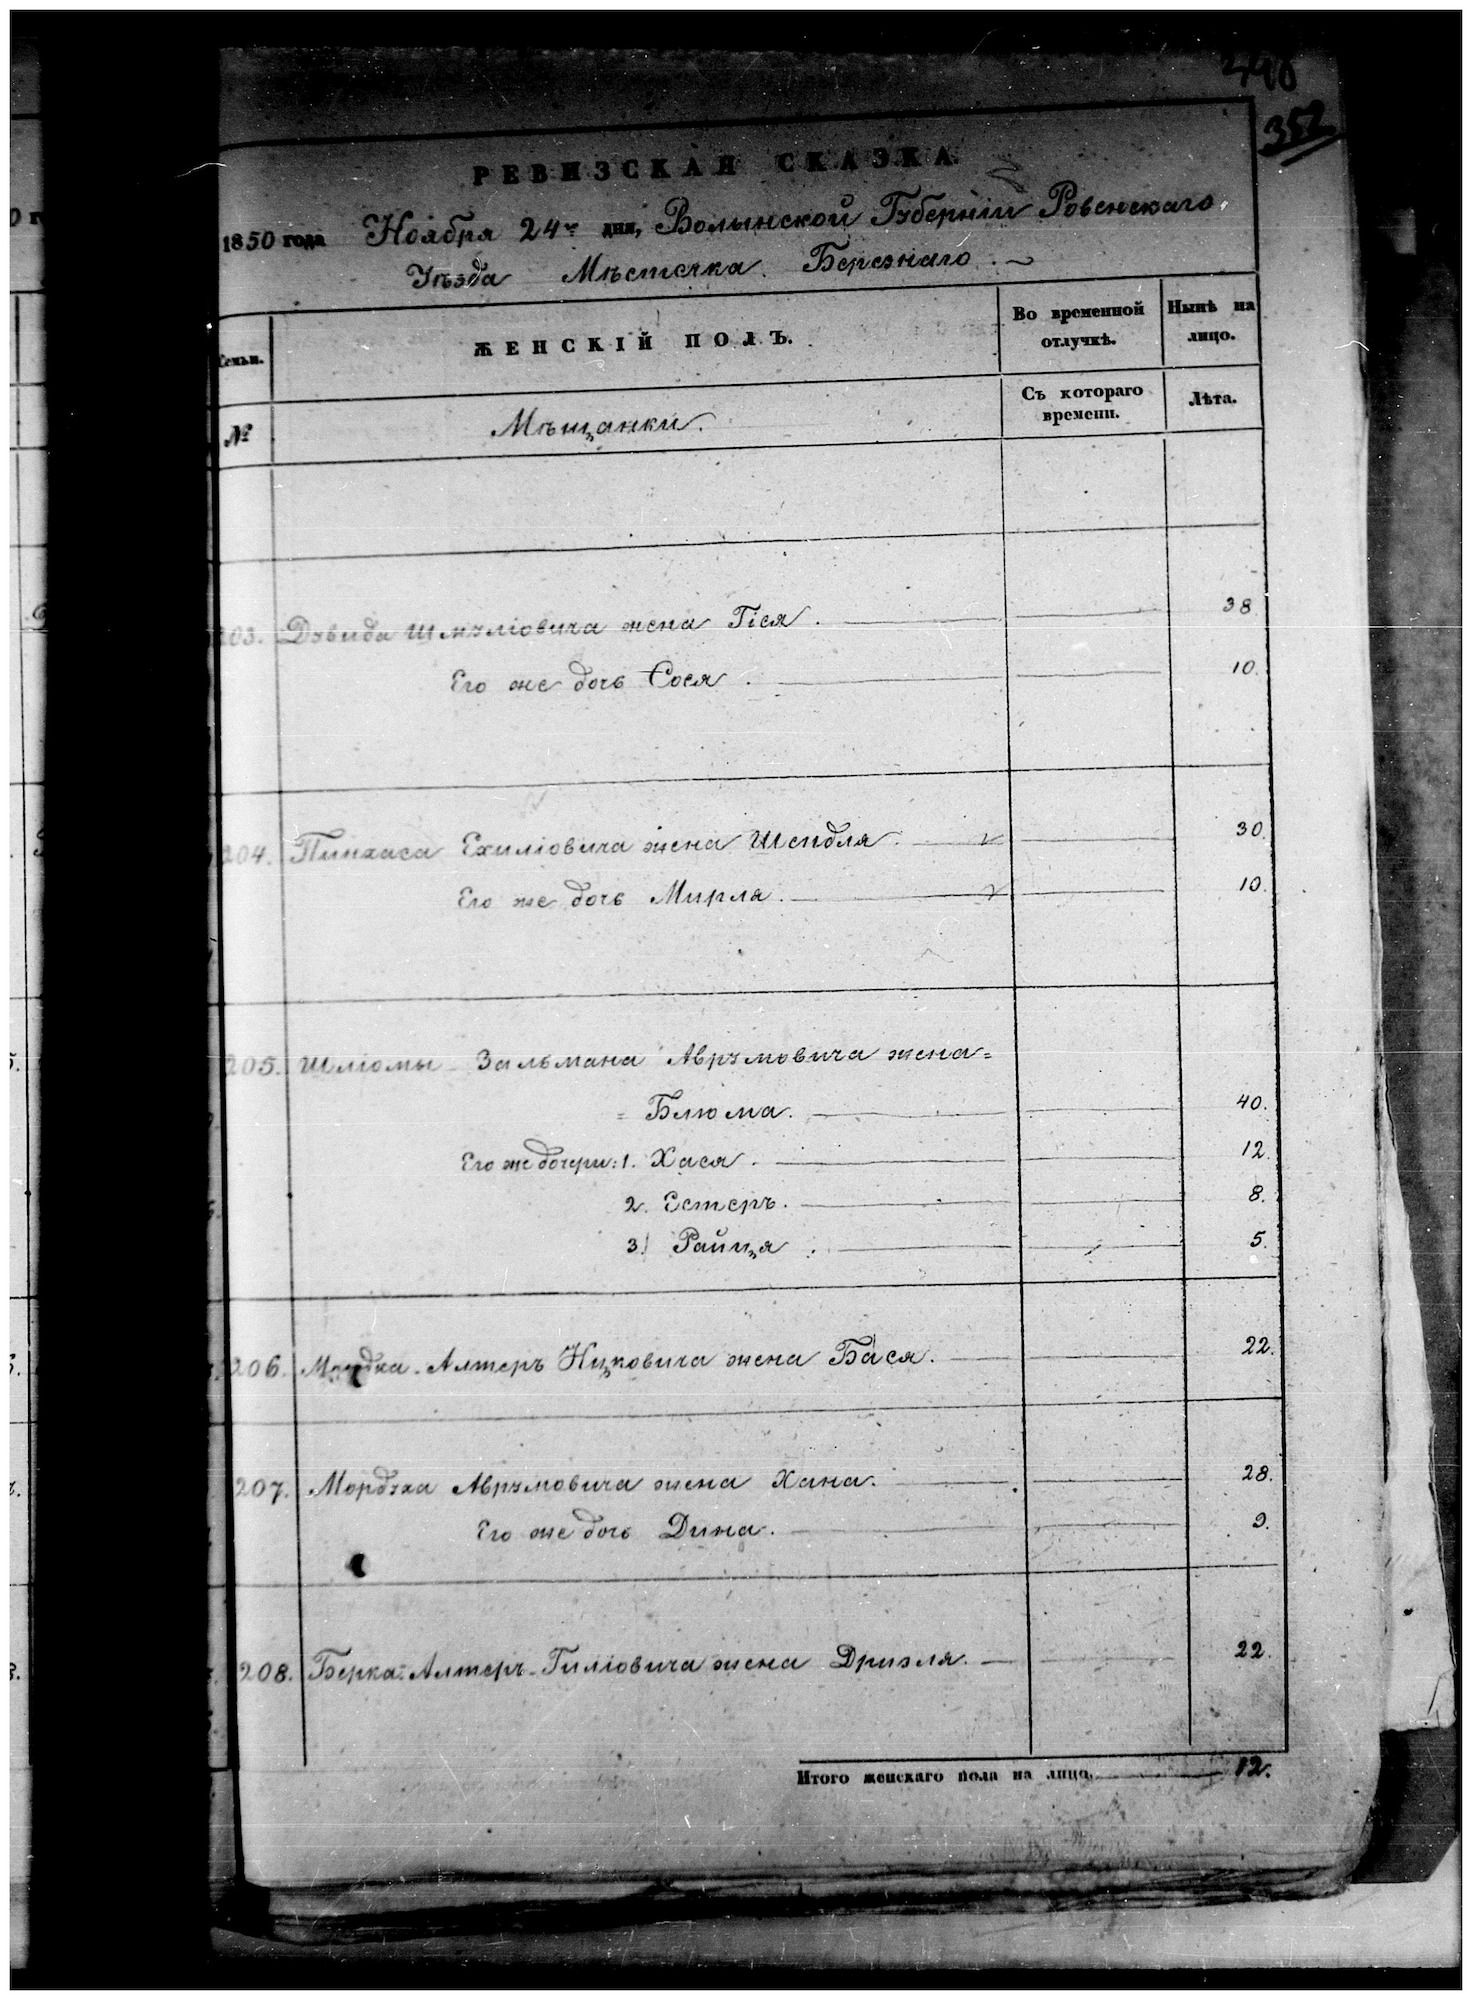 498
352
РЕВИЗСКАЯ СКАЗКА
1850 года Ноября 24го дня, Волынской Губерніи Ровенскаго
Уѣзда Мѣстечка Березнаго
Семьи. ЖЕНСКІЙ ПОЛЪ. Во временной отлучкѣ. Нынѣ на лицо.
№ Мѣщанки. Съ котораго времени. Лѣта.
203. Дувида Шмуліовича жена Гіся. 38.
Его же дочь Сося. 10.
204. Пинхаса Ехиліовича жена Шейдля. 30.
Его же дочь Мирля. 10.
205. Шліомы Зальмана Аврумовича жена=
= Блюма. 40.
Его же дочери: 1. Хася. 12.
2. Естеръ. 8.
3. Райця. 5.
206. Мордка-Алтеръ Ицковича жена Бася. 22.
207. Мордуха Аврумовича жена Хана. 28.
Его же дочь Дина. 9.
208. Берка-Алтеръ Гиліовича жена Дризля. 22.
Итого женскаго пола на лицо. 12.